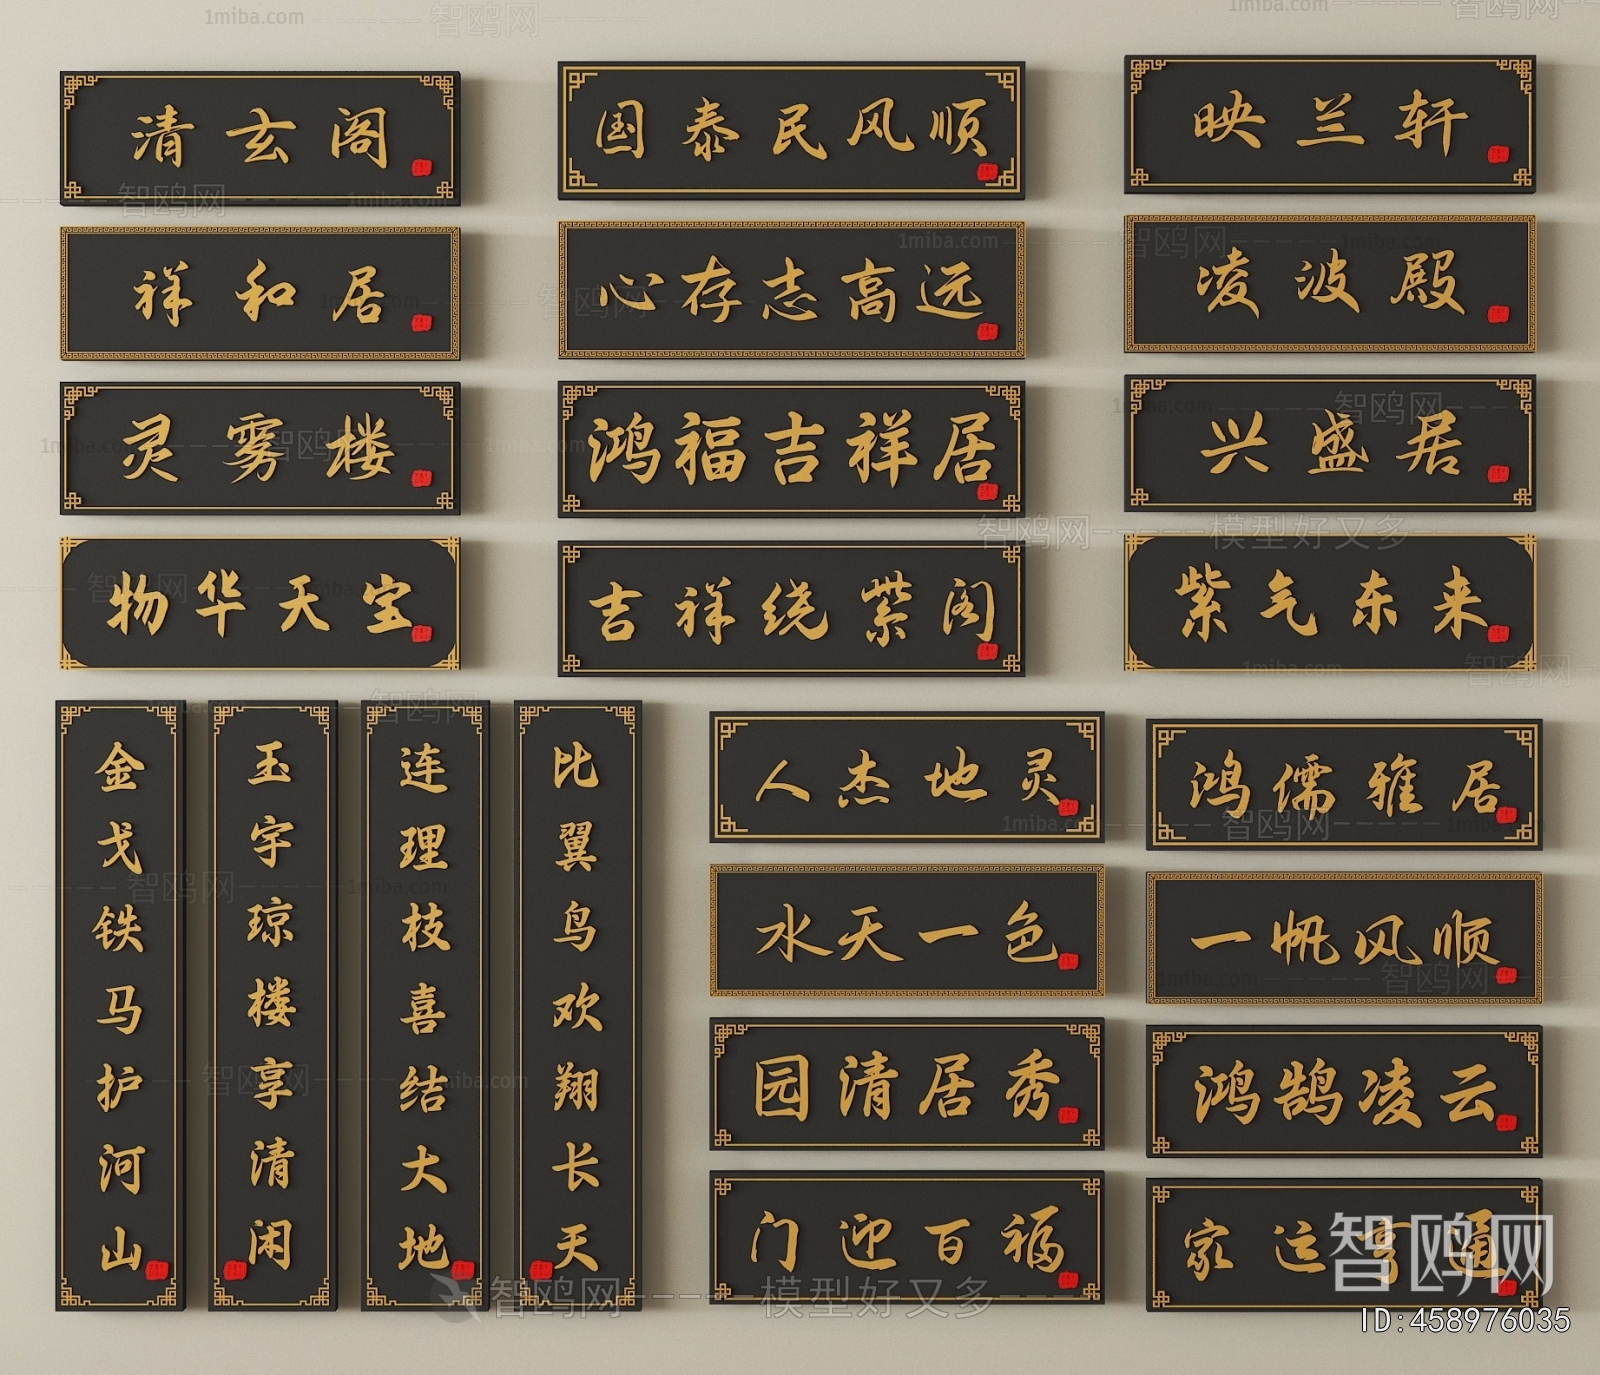 清玄阁
国泰民风顺
映兰轩
祥和居
心存志高远
凌波殿
灵雾楼
鸿福吉祥居
兴盛居
物华天宝
吉祥绕紫阁
紫气东来
金戈铁马护河山
玉宇琼楼享清闲
连理枝喜结大地
比翼鸟欢翔长天
人杰地灵
鸿儒雅居
水天一色
一帆风顺
园清居秀
鸿鹄凌云
门迎百福
家运亨通
智鸥网
ID:458976035
1miba.com
智鸥网-----模型好又多